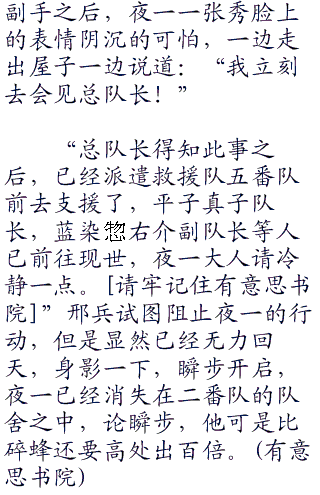 副手之后，夜一一张秀脸上
的表情阴沉的可怕，一边走
出屋子一边说道：“我立刻
去会见总队长！”
“总队长得知此事之
后，已经派遣救援队五番队
前去支援了，平子真子队
长，蓝染惣右介副队长等人
已前往现世，夜一大人请冷
静一点。[请牢记住有意思书
院]”邢兵试图阻止夜一的行
动，但是显然已经无力回
天，身影一下，瞬步开启，
夜一已经消失在二番队的队
舍之中，论瞬步，他可是比
碎蜂还要高处出百倍。(有意
思书院)